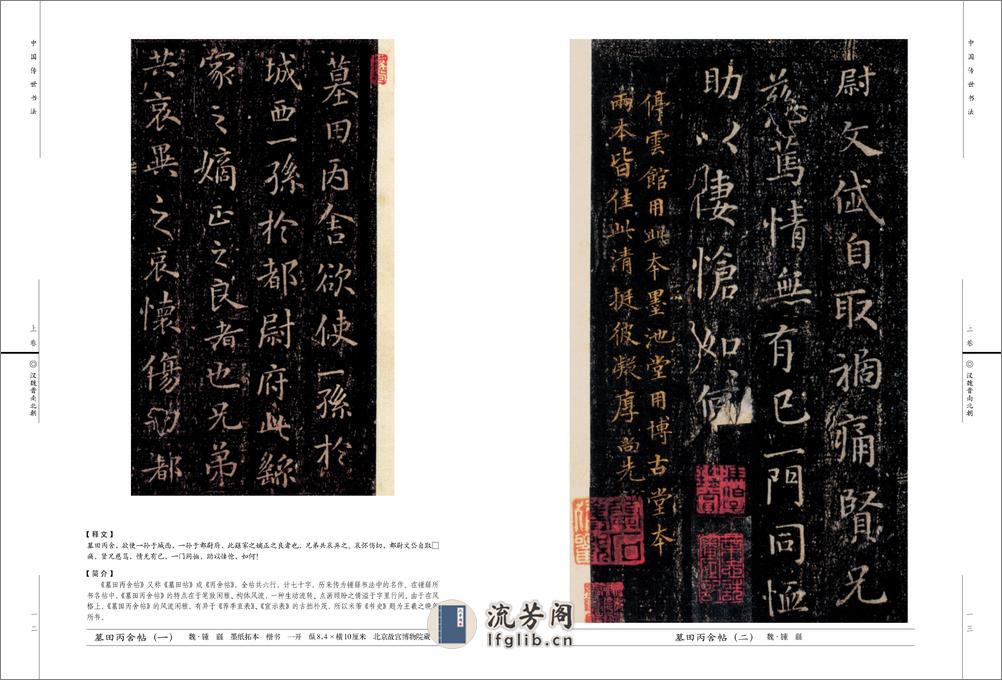 中国传世书法
上卷
◎汉魏晋南北朝
一二
墓田丙舍欲使一孫於
城西一孫於都尉府此繇
家之嫡正之良者也兄弟
共哀異之哀懷傷切都
【释文】
墓田丙舍，欲使一孙于城西，一孙于都尉府，此繇家之嫡正之良者也，兄弟共哀异之，哀怀伤切，都尉文岱自取□
痛，贤兄慈笃，情无有已，一门同恤，助以悽怆，如何！
【简介】
《墓田丙舍帖》又称《墓田帖》或《丙舍帖》，全帖共六行，计七十字，历来传为锺繇书法中的名作。在锺繇所
书各帖中，《墓田丙舍帖》的特点在于笔致闲雅，构体风流，一种生动流转、点画顾盼之情溢于字里行间。由于在风
格上，《墓田丙舍帖》的风流闲雅，有异于《荐季直表》、《宣示表》的古拙朴茂，所以米芾《书史》题为王羲之晚年
所书。
墓田丙舍帖（一） 魏·锺繇 墨纸拓本 楷书 一开 纵8.4×横10厘米 北京故宫博物院藏
流芳阁
lfglib.cn
尉文岱自取禍痛賢兄
慈篤情無有已一門同恤
助以悽愴如何
停雲館用此本墨池堂用博古堂本
兩本皆佳此清挺彼凝厚尚先
墓田丙舍帖（二） 魏·锺繇
中国传世书法
上卷
◎汉魏晋南北朝
一三